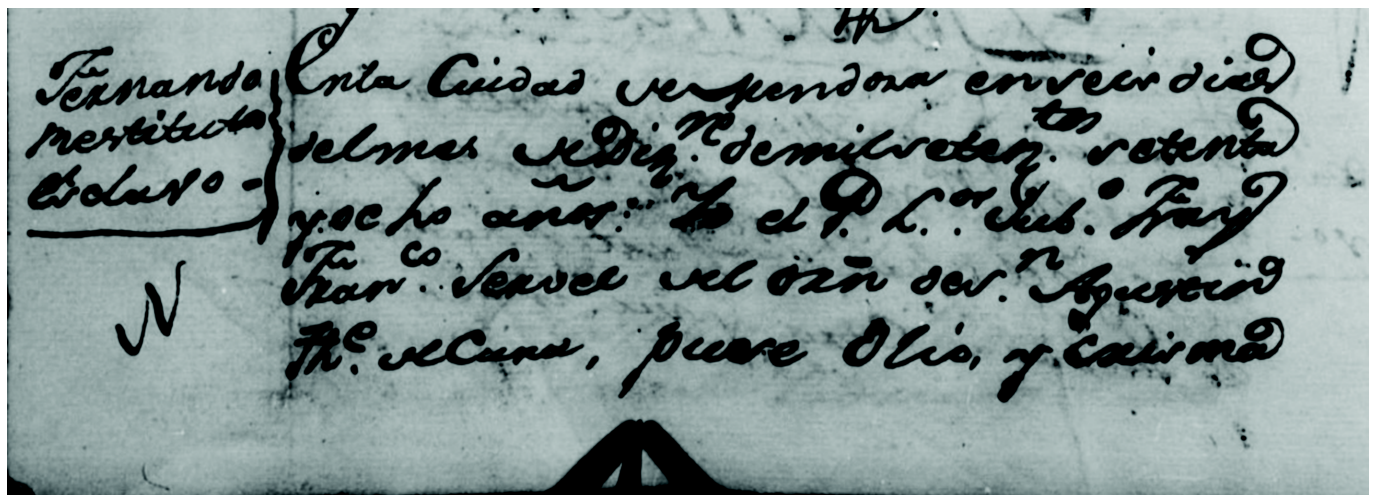 Fernando
mestituto
esclavo -
Enla Ciudad de Mendoza en seis dias
del mes de Diz.re de mil setez.tos setenta
y ocho años: Yo el P. L.or Jub.o Fray
Fran.co Servel del Orñ de S.n Agustin
Th.e de Cura, puse Olio, y Crisma
N